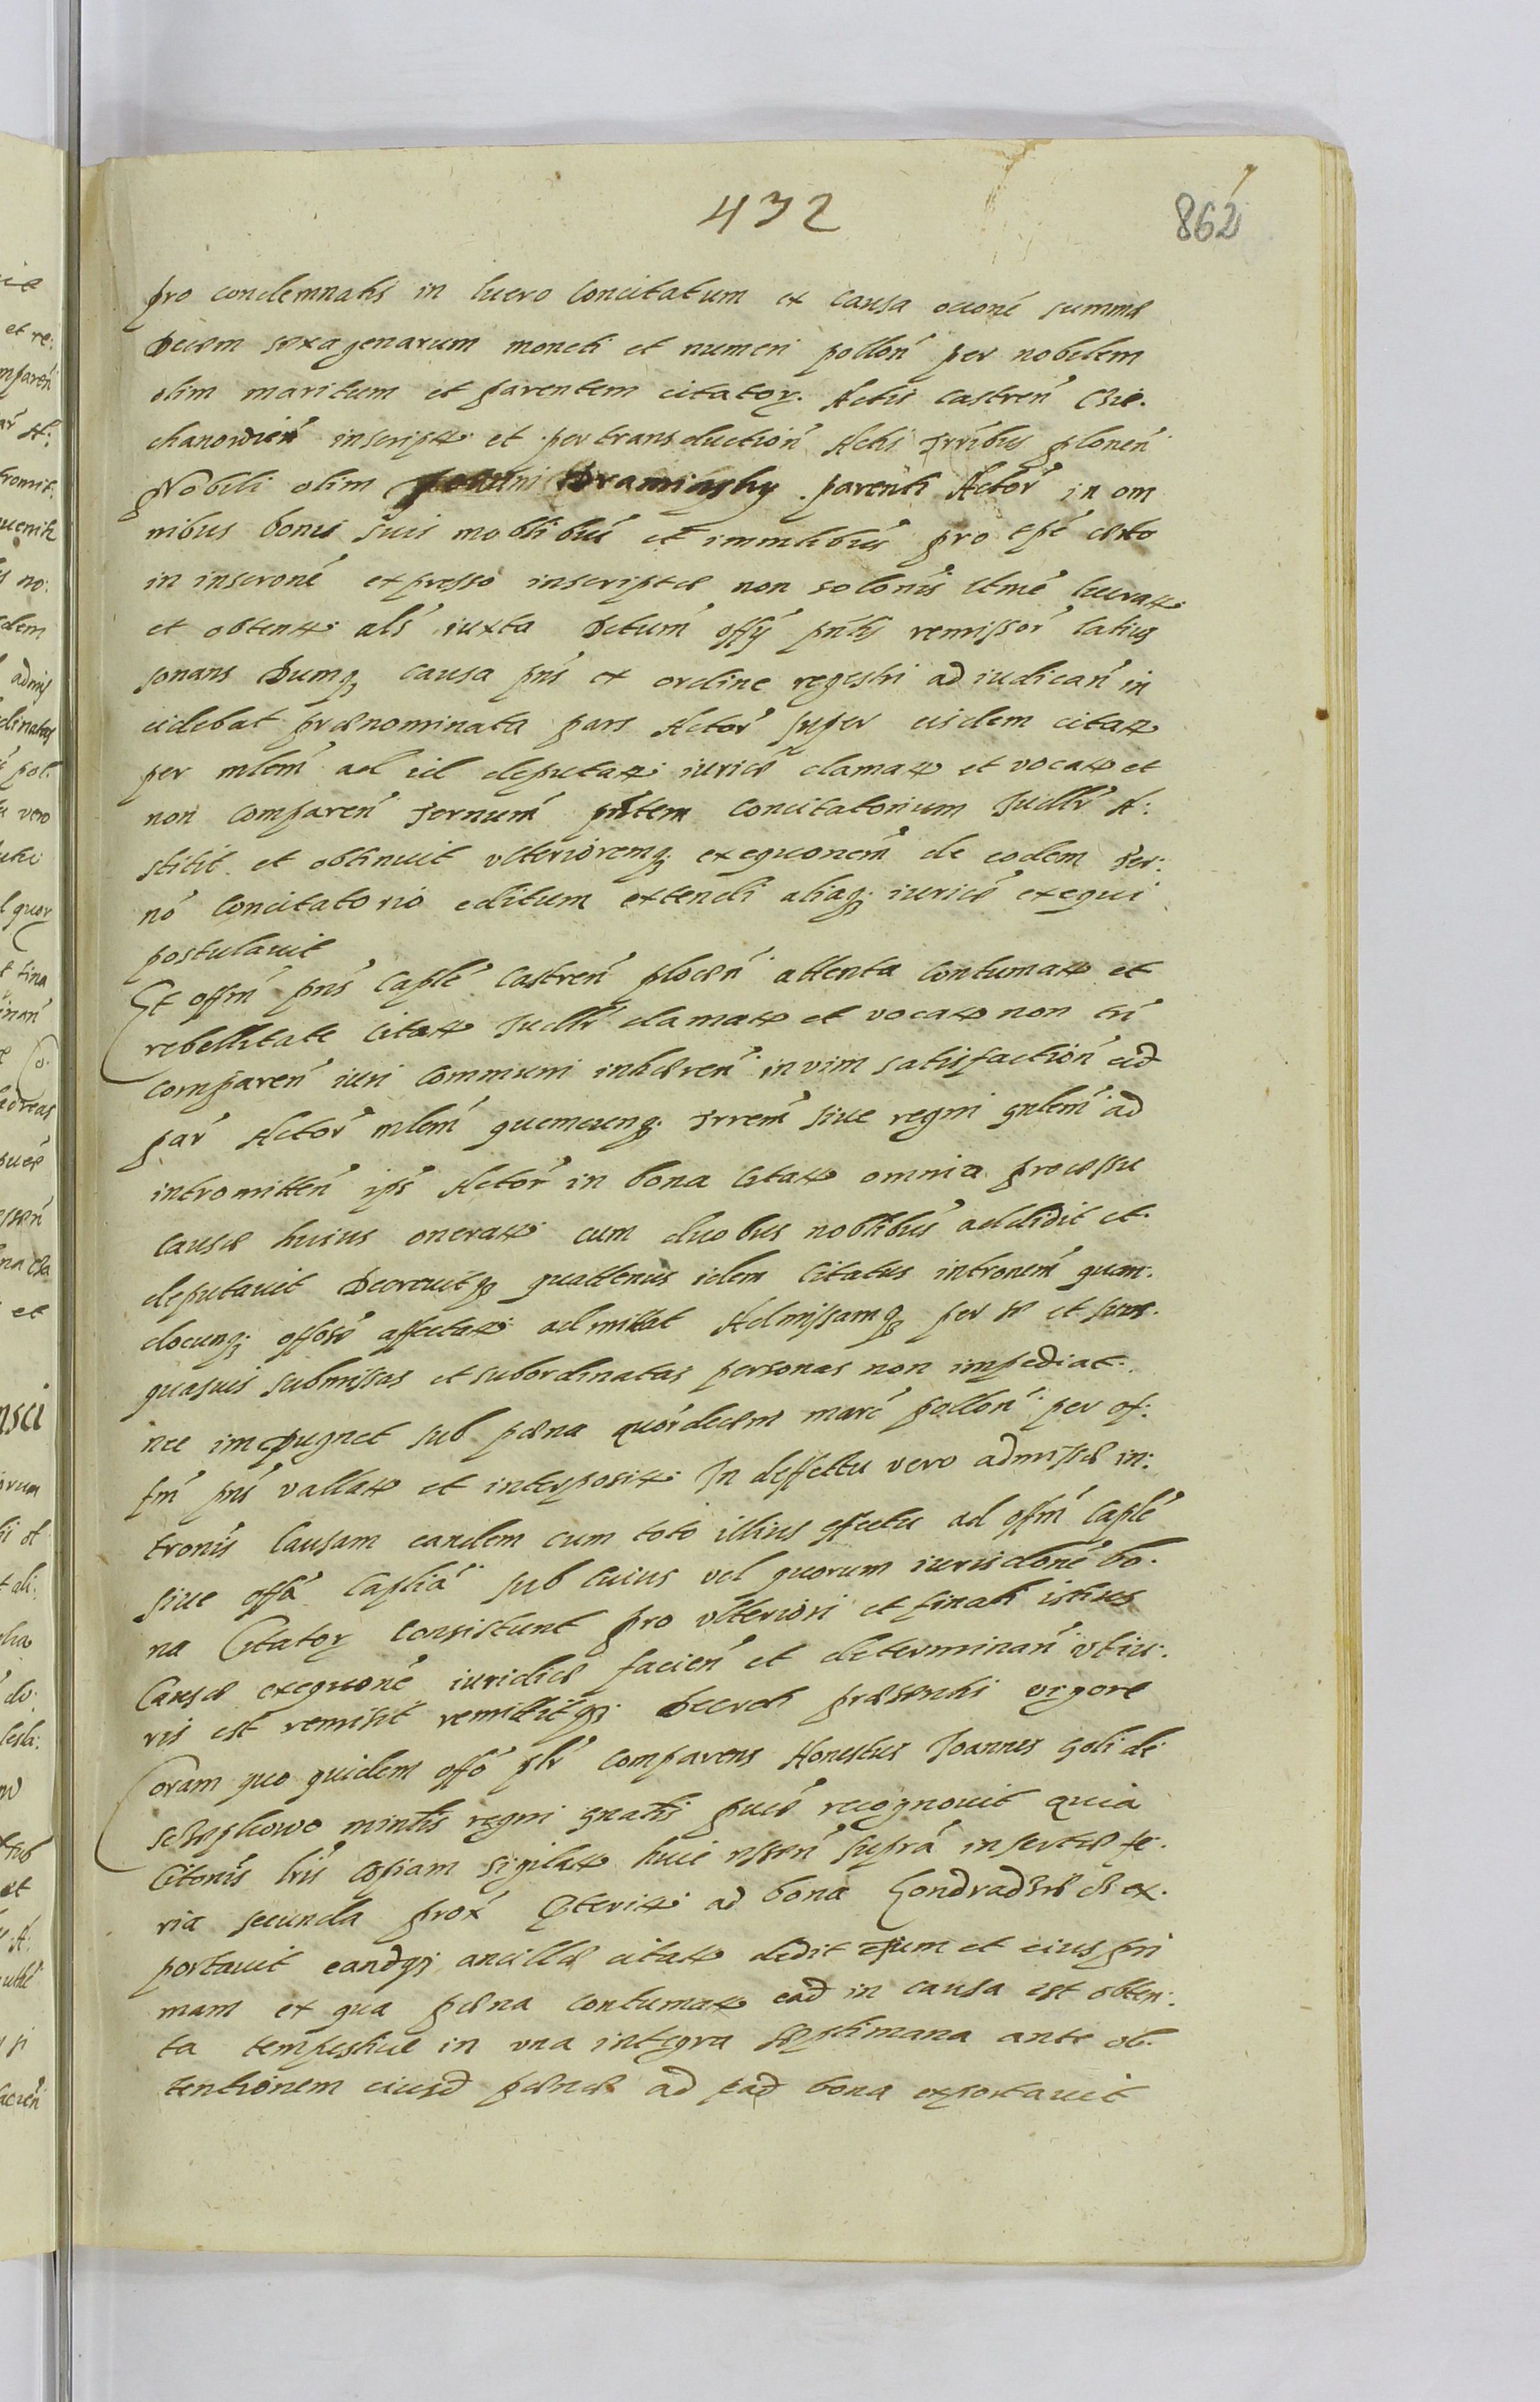 432
862
pro condemnatis in lucro Concitatum ex causa occoné summæ
Decem sexagenarum moneti et numeri pollon̄ per nobilem
olim maritum et parentem citator. Actis Castren̄ Cie-
chanowien̄ inscript et per transduction̄ Actis trribus plonen̄
Nobili olim Draminsky parenti Actor̄ in om
nibus bonis suis moblibus et immlibus pro certo
in inscroné expresso inscriptæ non solonis ltmé lucrat
et obtent als iuxta Dctum offy pntis remissor̄ latius
sonans Dumq causa pns ex ordine regestri ad iudican̄ in
cidebat prænominata pars Actor̄ super eisdem citat
per mlem ad id deputat iurice clamat et vocat et
non comparen̄ ternum pntem Concitatorium Judlr̄ A:
stitit et obtinuit vlterioremq exequonem de eodem Ter:
nó Concitatorio editum extendi aliaq iurice exequi
postulauit
Et offm pns Caple Castren̄ plocen̄ attenta Contumat et
rebellitate Citat Judlr̄ clamat et vocat non tn̄
comparen̄ iuri Communi inhæren̄ in vim satisfaction̄ eid
par Actor̄ mlem quemcunq trrem siue regni gnlem ad
intromitten̄ ips Actor̄ in bona Citat omnia processu
causæ huius onerat cum duobus noblibus addidit et
deputauit Decreuitq quattenus idem Citatus intronem quan-
docunq offose affectat admittat Admissamq per se et suas
quasuis submissas et subordinatas personas non impediat
nec impugnet sub pæna quordecem marc pollon̄ per of:
fm pns vallat et interposit In deffectu vero admissæ in:
tronis Causam eandem cum toto illius effectu ad offm Caple
siue offa Caplia sub cuius vel quorum iurisdoné bo-
na Citator consistunt pro vlteriori et finali istius
Causæ exequoné iuridica facien̄ et determinan̄ vti iu:
ris est remisit remittitq Decreti præsentis vigore
Coram quo quidem offo plr comparens Honestus Joannes Goli de
mintlis regni gnalis recognouit quia
Citonis lris Copiam sigilat huic supra insertæ fe-
ria secunda prox pterit ad bona Gondradz ex-
portauit eandq ancillæ citat dedit et eius pri
mam ex qua pæna contumat ead in causa est obten:
ta tempestiue in vna integra septimana ante ob-
tentionem eiusd pænæ ad ead bona exportauit